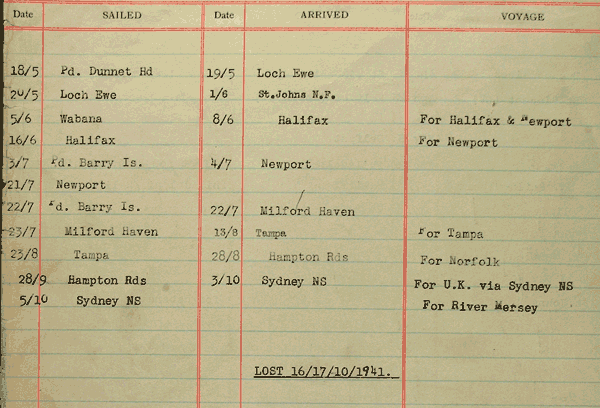 Date SAILED Date ARRIVED VOYAGE
18/5 Pd. Dunnet Hd 19/5 Loch Ewe
20/5 Loch Ewe 1/6 St.Johns N.F.
5/6 Wabana 8/6 Halifax For Halifax & Newport
16/6 Halifax For Newport
3/7 Pd. Barry Is. 4/7 Newport
21/7 Newport
22/7 Pd. Barry Is. 22/7 Milford Haven
23/7 Milford Haven 13/8 Tampa For Tampa
23/8 Tampa 28/8 Hampton Rds For Norfolk
28/9 Hampton Rds 3/10 Sydney NS For U.K. via Sydney NS
5/10 Sydney NS For River Mersey
LOST 16/17/10/1941.